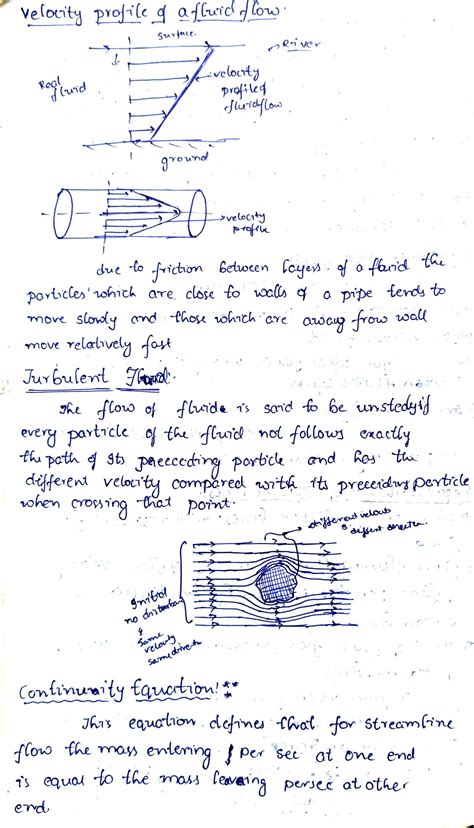 Velocity profile of a fluid flow.
surface.
River
Real
fluid
velocity
profile of
fluid flow
ground
velocity
profile
due to friction between layers of a fluid the
particles which are close to walls of a pipe tends to
move slowly and those which are away frow wall
move relatively fast
Turbulent
The flow of fluide is said to be unstedy if
every particle of the fluid not follows exactly
the path of its preeceding particle and has the
different velocity compared with its preceidns particle
when crossing that point.
different velocity
& diffent direction
Initial
no disturban
&
same
velocity
same direct
Continuity Equation! **
This equation defines that for streamline
flow the mass entering per sec at one end
is equal to the mass leaving persec at other
end